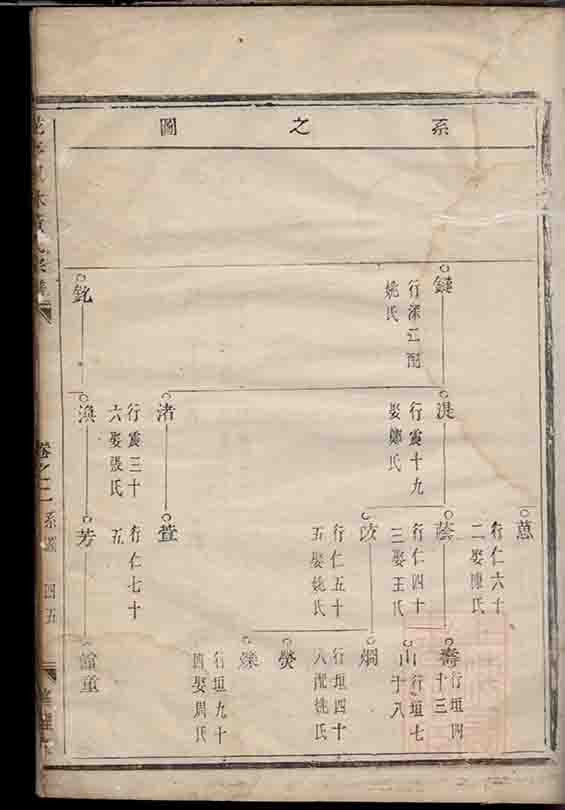 系之圖
鏈
行深江配
姚氏
銘
淏
行震十九
娶鄭氏
渚
行震三十
六娶張氏
蒠
行仁六十
二娶陳氏
蔭
行仁四十
三娶王氏
行仁五十
五娶姚氏
萱
行仁七十
五
芳
壽
行垣四
十三
山
行垣七
十八
烱
行垣四十
八配姚氏
熒
爍
行垣九十
四娶周氏
館童
卷之二
系圖
四五